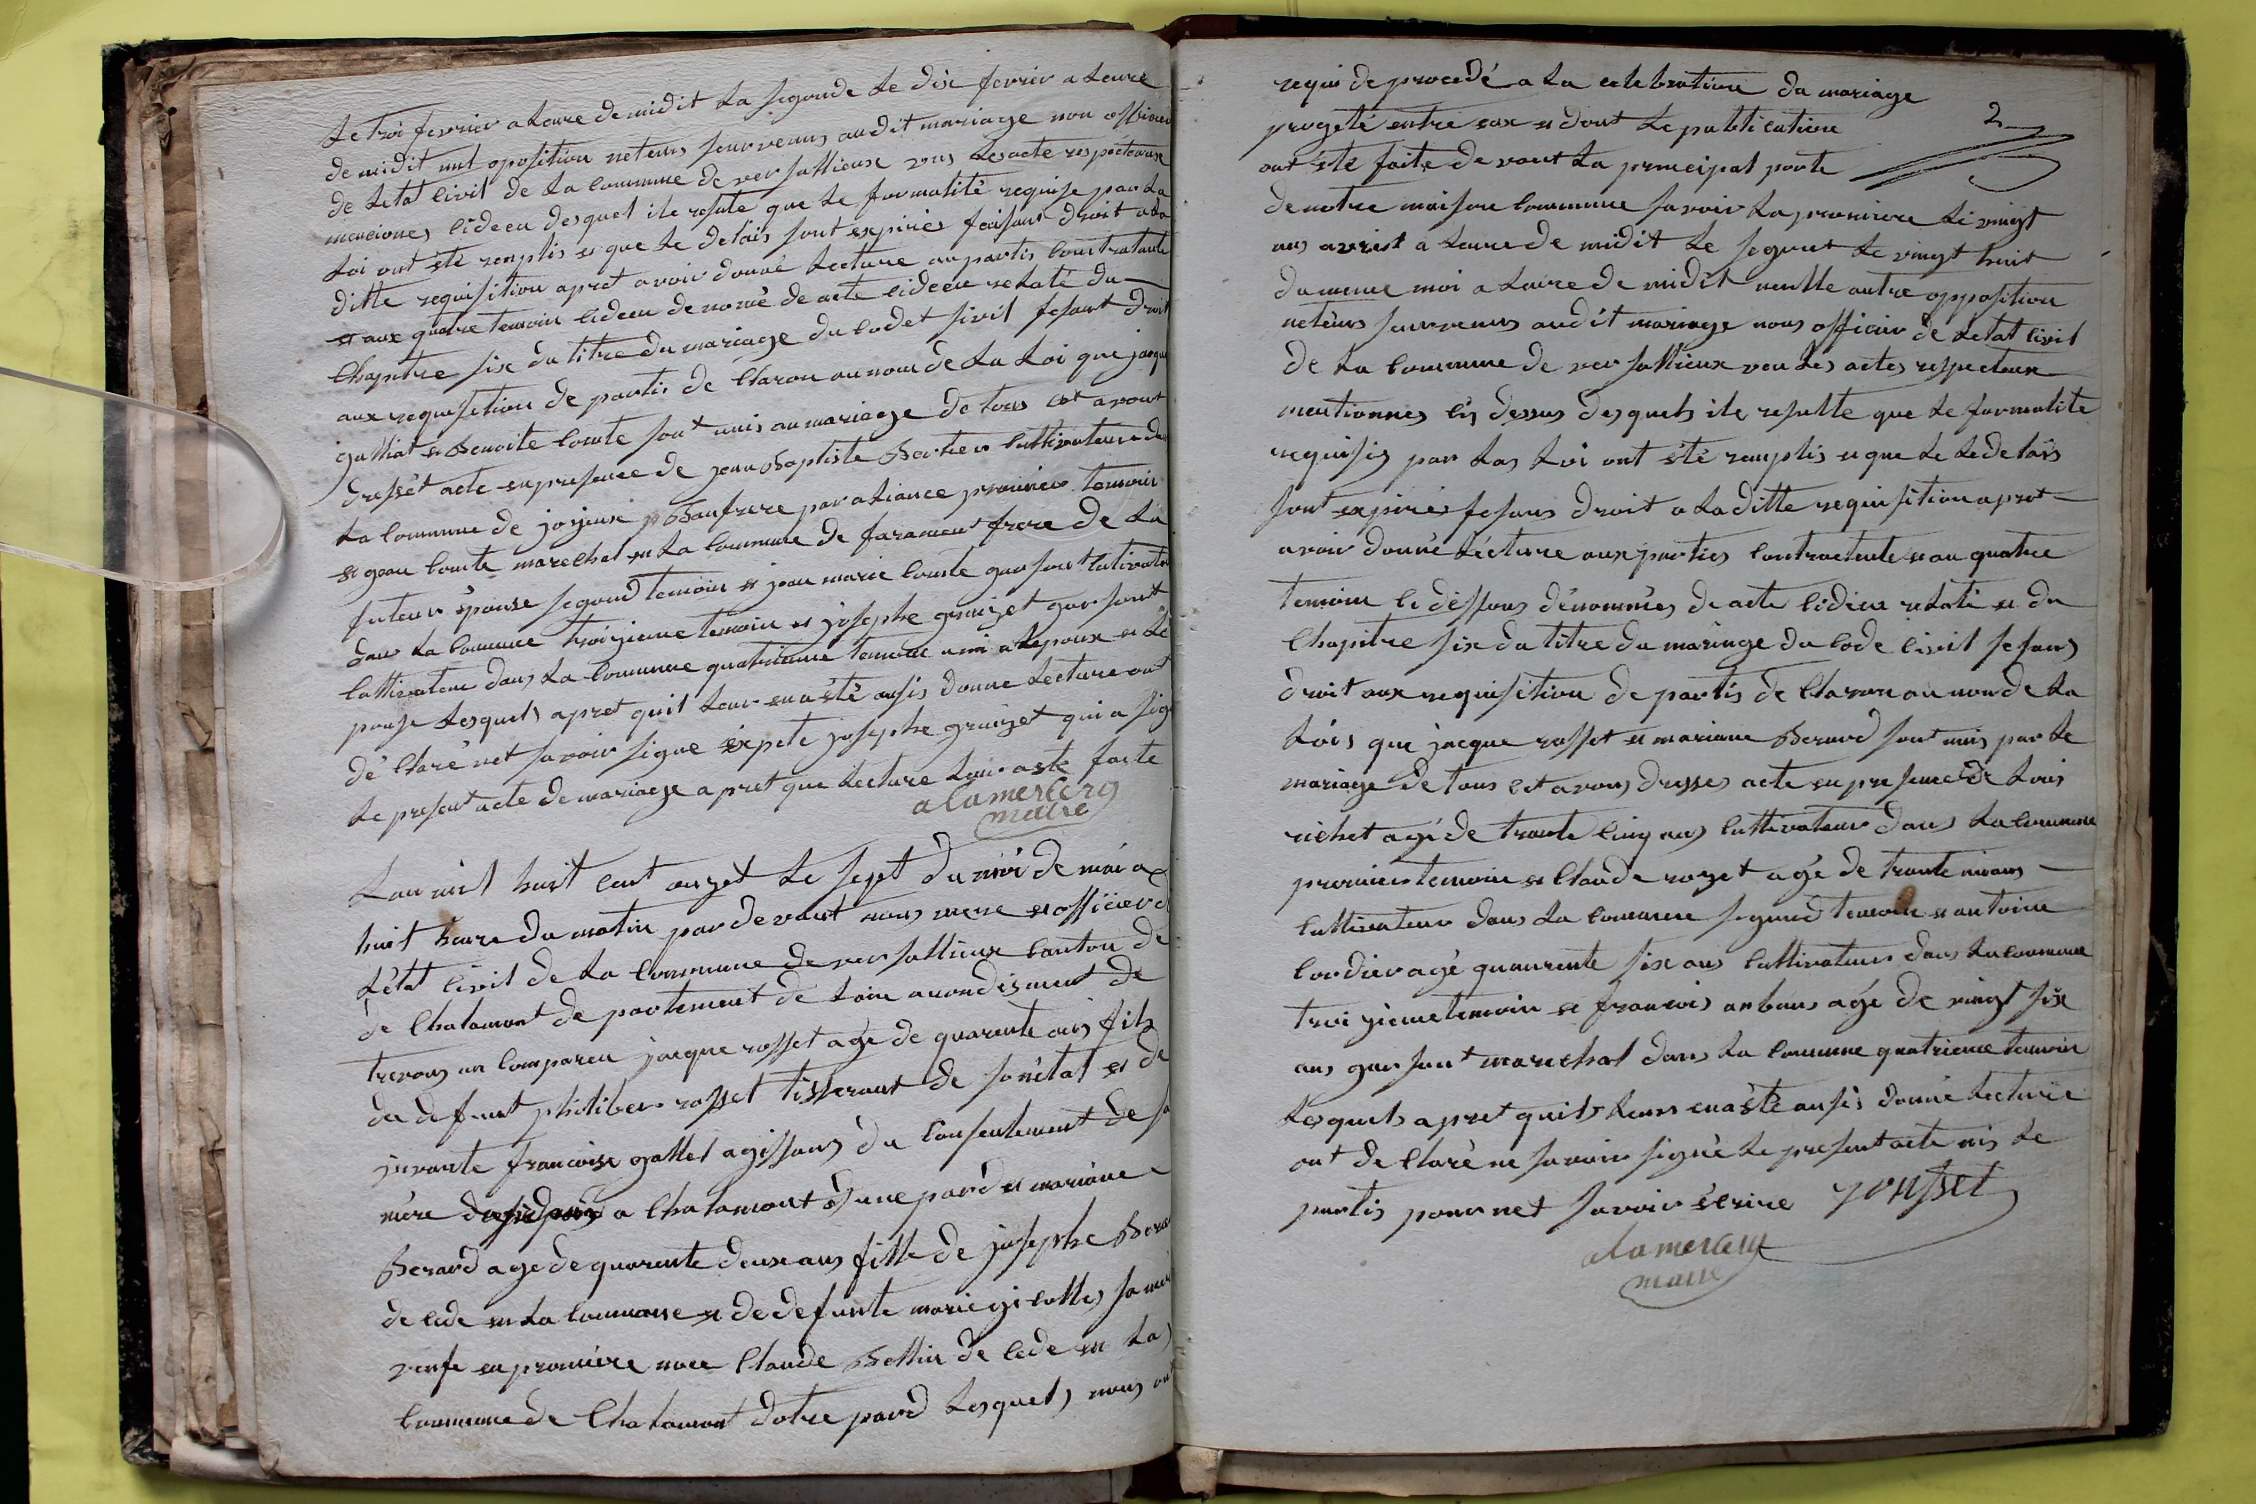 Le troi fevrier a leure de midit la segonde le dix fevrier a leure
de midit nul oposition netens survenus audit mariage nou offisier
de letat civil de la commune de versallieux vus les acte respectueuse
mencionés cideeu desquel ile resulte que le formalité requise par la
loi ont été remplis et que le delais sont expirés faisant droit a la
ditte requisition apret avoir donné lecture au partis contratante
et aux quatre temoin cideeu denomé de acte cideeu relaté du
Chapitre six du titre du mariage du codet sivil fesant droit
aux requisition de partis de Claron au nom de la loi que jacque
galliat et Benoite Comte sont unis au mariage de tous cet avont
dressét acte en presence de jean Baptiste Bertier cultivateur de
la commune de joyeux Baufrere par aliance premier temoin
et jean Comte marechal en la commune de faramant frere de la
futeur épouse segond temoin et jean marie Comte garsont cultivateur
dans la commune troizieme temoin et josephe granjet garsont
cultivateur dans la commune quatrieme temoin ami a lepoux et lé
pouse lesquels apret quil leur en a été ausis donne lecture ont
dé claré net savoir signe expeté josephe granjet qui a sig
le present acte de mariage apret que lecture leur a eté faite
alamercery
maire
Lan mil huit cent onzet le sept du moi de mai a
huit heure du matin par devant nous mere et officier d
létat civil de la commune de versallieux canton de
de Chalamont de partement de lain arrondisment de
trevous on compareu jacque rosset agé de quarente ans fils
du defeunt philiber rosset tisserant de son état et de
vivante francoise gallet agissans du consentement de sa
mère a Chalamont d'une pard et mariane
Berard agé de quarente deux ans fille de josephe Berar
de cede en la commune et de defunte marie gicolles sa mere
veufe en premiére noce Claude Bellin de cede en la
commune de Chalamont dotre pard lesquels nous ont
requi de procedé a la celebratione du mariage
progeté entre eux et dont le publication
2
ont été faite devant la principal porte
de notre maison commune savoir la premiere le vingt
uns avrist a leure de midit le segont le vingt huit
du meme moi a leure de midit nulle autre opposition
neténs survenus audit mariage nous officier de letat civil
de la commune de versallieux veu les actes respecteux
mentionnes cis dessus desquels ile resulte que le formalité
requisis par las loi ont été remplis et que le le delais
sont expirés fesans droit a la ditte requisition apret
avoir donné lécture aux parties contractente et au quatre
temoin ci dessous dénommés de acte cideeu relaté et du
Chapitre six du titre du mariage du code civil fesans
droit aux requisition de partis de Claron au nom de la
lois que jacque rosset et mariane Berard sont unis par le
mariage de tous cet avons dresses acte en presence de Louis
richet agé de trante cinq ans cultivateur dans la commune
premier temoin et Claude rozet agé de trante ni ans
cultivateur dans la commune segond temoin et antoine
Cordier agé quaurente six ans cultivateur dans la commune
troi zieme temoin et francois anbans agé de vingt six
ans garsont marechal dans la commune quatrieme temoin
lesquels apret quils leurs en a été ausis donné lecture
ont de claré ne savoir signé le present acte nis le
partis pour net savoir écrire J rosset
alamercery
maire